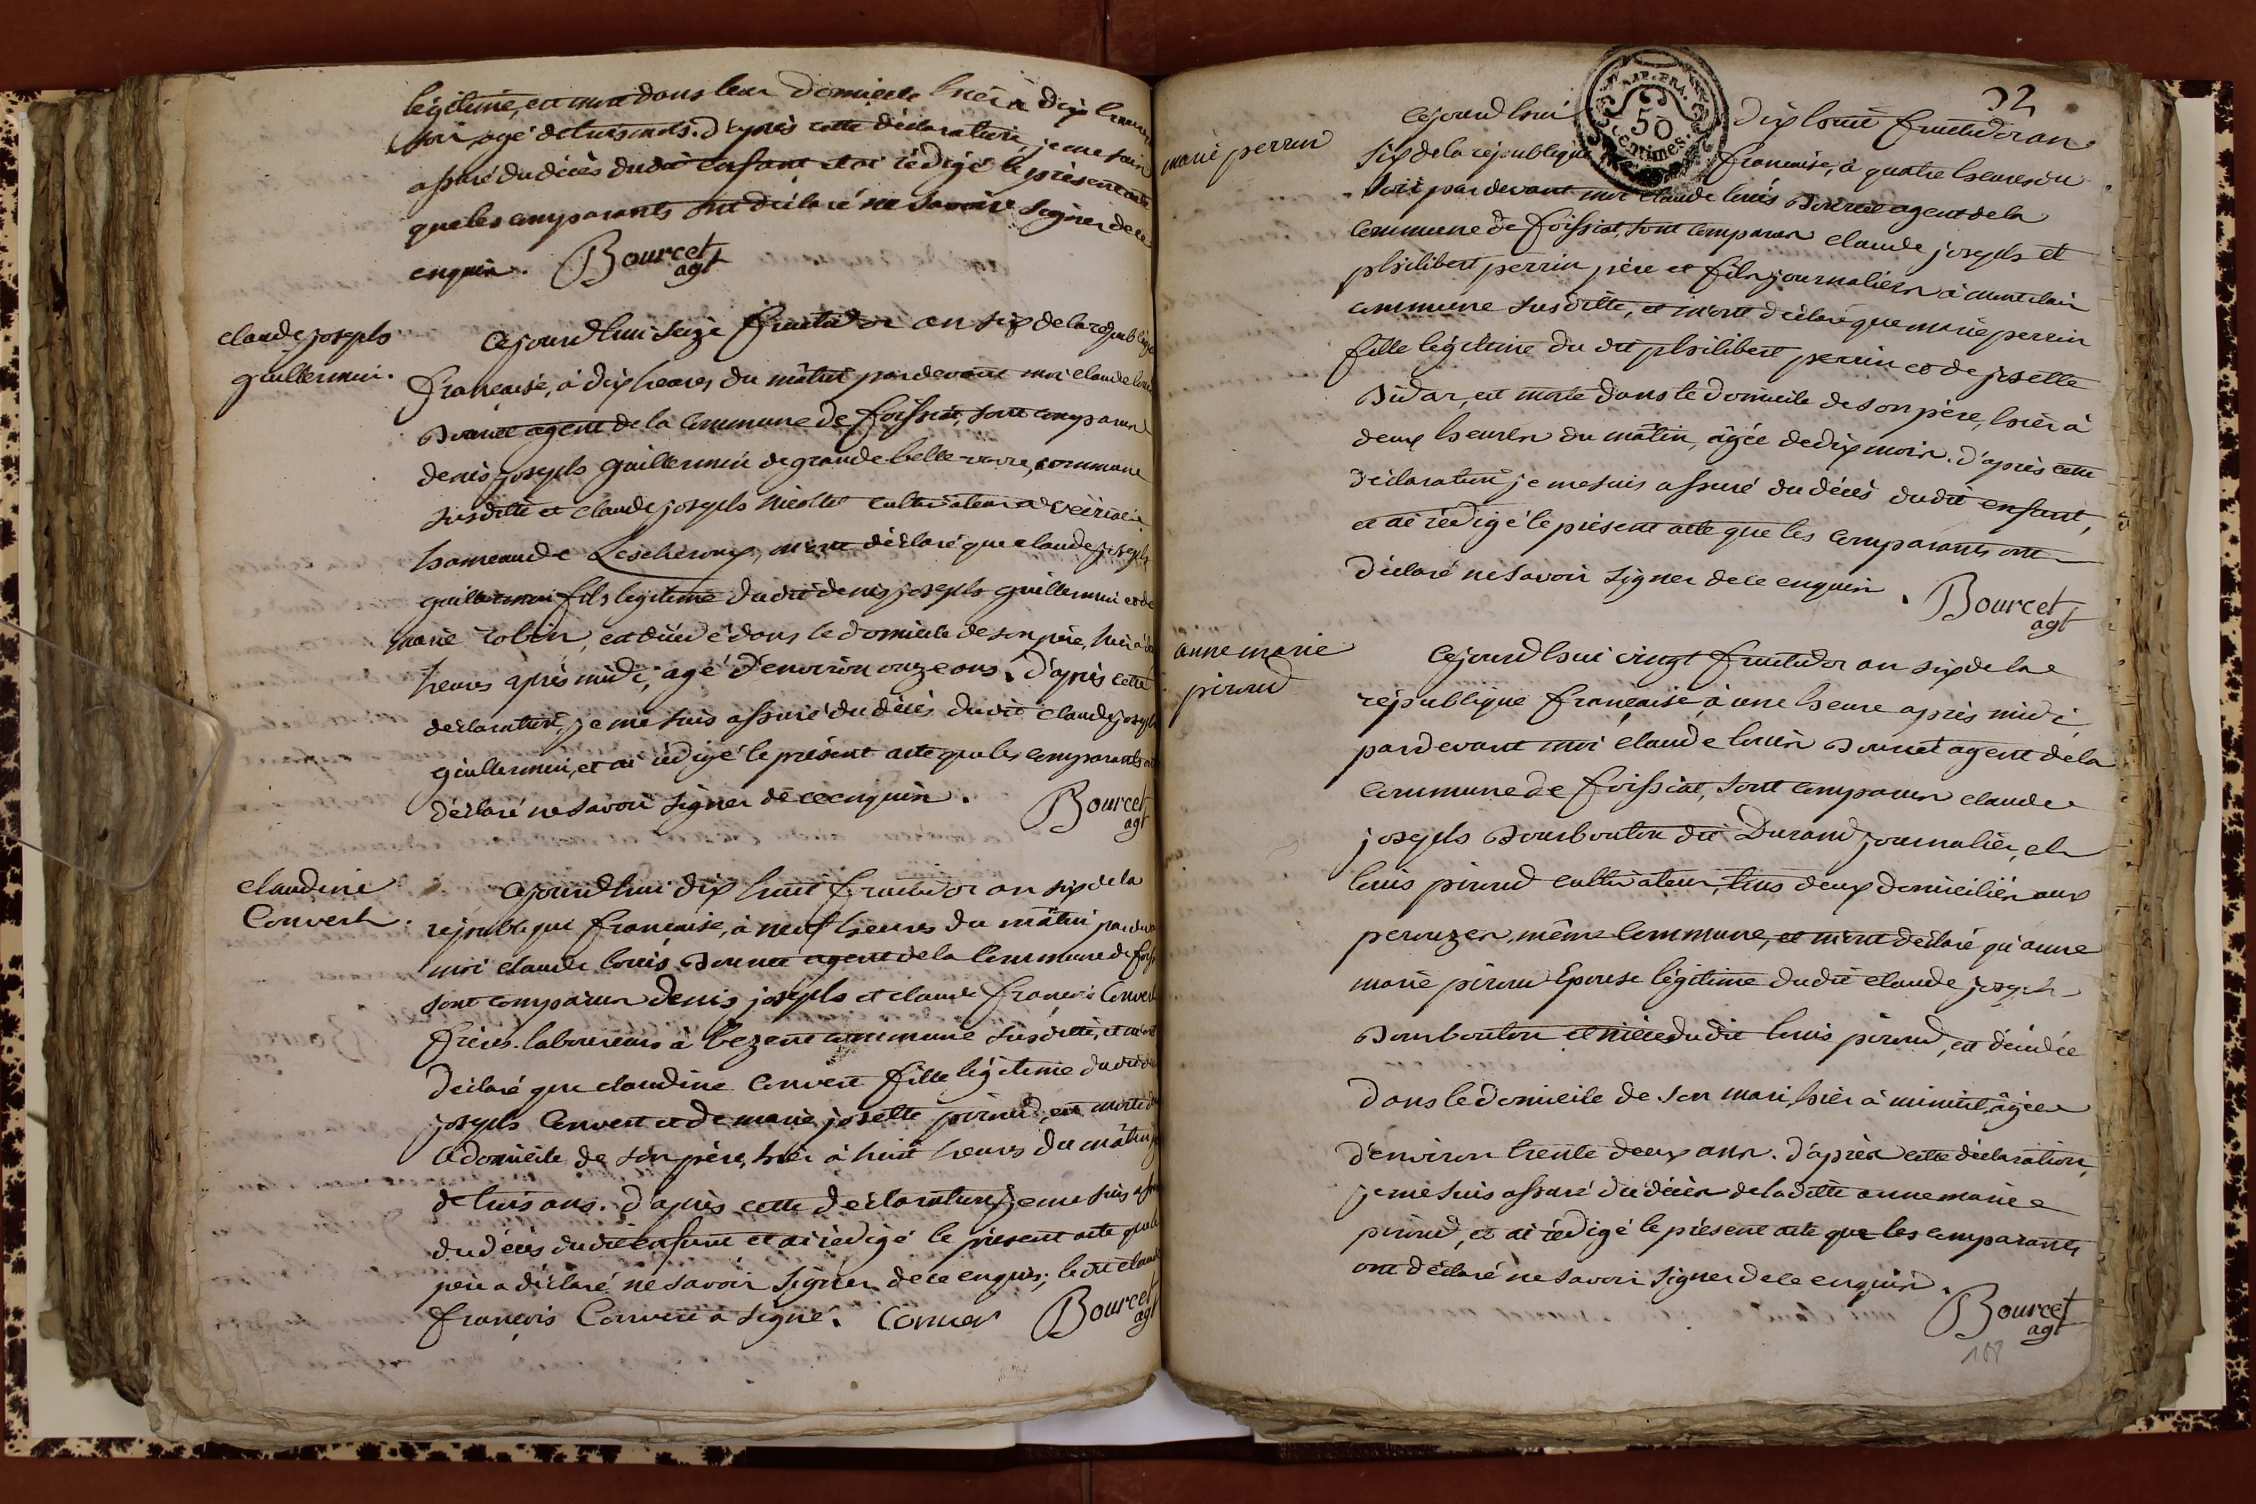 légitime, est mort dans leur domicile hier à dix heures
soir, agé de trois mois. d'après cette déclaration, je me suis
assuré du décès dudit enfant et ai rédigé le présent acte
que les comparants ont déclaré ne savoir signer de ce
enquis. Bourcet
agt
claude joseph
guillermin.
Cejourd'hui seize fructidor an six de la république
française, à dix heures du mâtin pardevant moi claude louis
Bourcet agent de la commune de foissiat, sont comparus
denis joseph guillermin de grande belle vavre, commune
susditte et claude joseph nicollet cultivateur a
hameau de Lescheroux, m'ont déclaré que claude joseph
guillermin fils légitime dudit denis joseph guillermin et de
marie robin, est décédé dans le domicile de son père, hier à
heures après midi, agé d'environ onze ans. d'après cette
déclaration, je me suis assuré du décès dudit claude joseph
guillermin, et ai rédigé le présent acte que les comparants ont
déclaré ne savoir signer de ce enquis. Bourcet
agt
claudine
Convert.
Cejourd'hui dix huit fructidor an six de la
république française, à neuf heures du mâtin pardevant
moi claude louis Bourcet agent de la commune de
sont comparus denis joseph et claude françois Convert
frères laboureurs à bezent commune susditte, et m'ont
déclaré que claudine Convert fille légitime dudit
joseph Convert et de marie josette piroud, est morte
le domicile de son père, hier à huit heures du mâtin
de trois ans. d'après cette déclaration, je me suis assuré
du décès dudit enfant et ai rédigé le présent acte que le
père a déclaré ne savoir signer de ce enquis; le dit claude
françois Convert a signé. Conver Bourcet
agt
32
AIP. FRA.
50
Centimes
marie perrin
Cejourd'hui dix huit fructidor an
six de la république française, à quatre heures du
soir pardevant moi claude louis Bourcet agent de la
commune de foissiat, sont comparus claude joseph et
philibert perrin père et fils journaliers à montclair
commune susditte, et m'ont déclaré que marie perrin
fille légitime du dit philibert perrin et de josette
Bidar, est morte dans le domicile de son père, hier à
deux heures du mâtin, âgée de dix mois. d'après cette
déclaration je me suis assuré du décès dudit enfant,
et ai rédigé le présent acte que les comparants ont
déclaré ne savoir signer de ce enquis. Bourcet
agt
anne marie
piroud
Cejourd'hui vingt fructidor an six de la
république française à une heure après midi
pardevant moi claude louis Bourcet agent de la
commune de foissiat, sont comparus claude
joseph Bourbouton dit Durand journalier, et
louis piroud cultivateur, tous deux domiciliés aux
perouzes, même commune, et m'ont déclaré qu'anne
marie piroud Epouse légitime dudit claude joseph
Bourbouton et niece dudit louis piroud, est décédée
dans le domicile de son mari, hier à minuit, âgée
d'environ trente deux ans. d'après cette déclaration,
je me suis assuré du décès de laditte anne marie
piroud, et ai rédigé le présent acte que les comparants
ont déclaré ne savoir signer de ce enquis.
Bourcet
agt